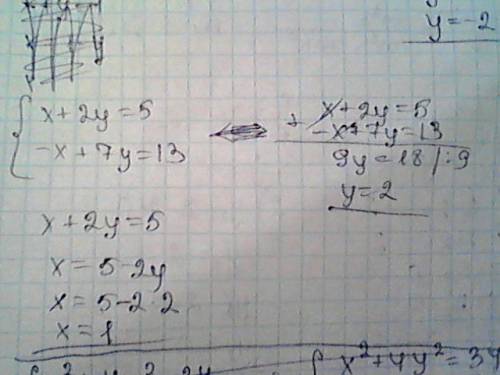 y=-2
{ x+2y=5
-x+7y=13
<=>
+ x+2y=5
-x+7y=13
9y=18 /:9
y=2
x+2y=5
x=5-2y
x=5-2·2
x=1
{ x²+4y²=34